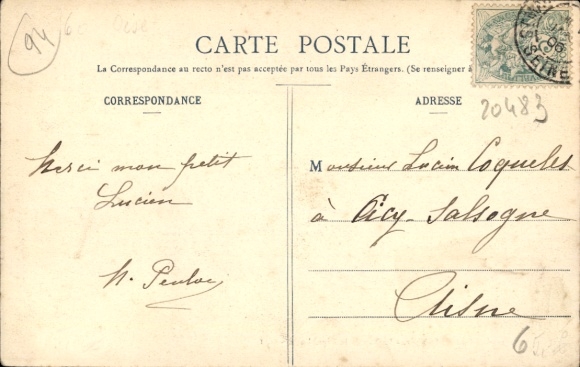 94
CARTE POSTALE
La Correspondance au recto n'est pas acceptée par tous les Pays Étrangers. (Se renseigner à
CORRESPONDANCE
ADRESSE
20483
Merci mon petit
Lucien
Monsieur Lucien Coquelet
à Ciry-Salsogne
Aisne
6
SEINE
06